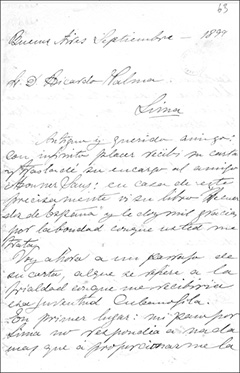 63
Buenos Aires Septiembre - 1899
S. D. Ricardo Palma
Lima
Antiguo y querido amigo:
con infinito placer recibí su carta
y trasladé su encargo al amigo
: en casa de este
precisamente vi su libro Recuer
dos de España y le doy mil gracias
por la bondad con que usted me
trata.
Voy ahora a un parrafo de
su carta, al que se refiere a la
frialdad con que me recibiria
esa juventud Cubanofila.
En primer lugar: mi paso por
Lima no respondia a nada
mas que a proporcionarme la